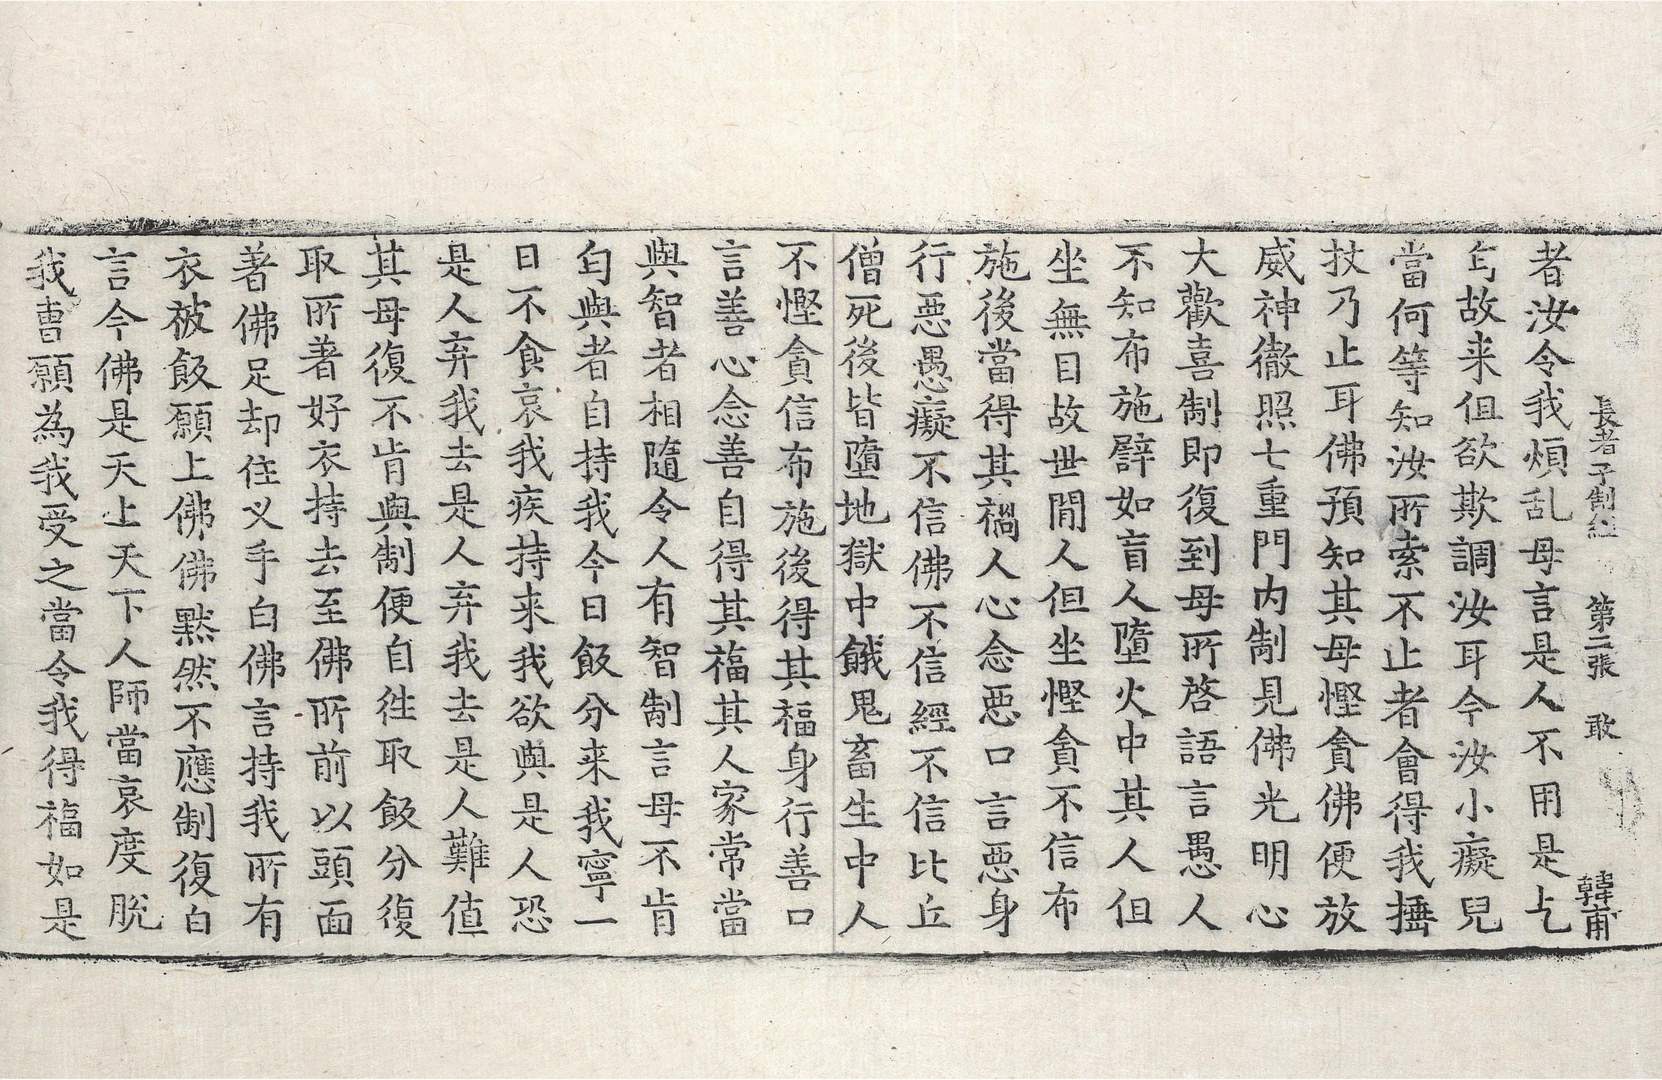 長者子制經 第二張 敢 韓甫
者汝令我煩乱母言是人不用是乞
匃故来但欲欺調汝耳今汝小癡兒
當何等知汝所索不止者會得我捶
扙乃止耳佛預知其母慳貪佛便放
威神徹照七重門內制見佛光明心
大歡喜制即復到母所啓語言愚人
不知布施譬如盲人墮火中其人但
坐無目故世間人但坐慳貪不信布
施後當得其禍人心念惡口言惡身
行惡愚癡不信佛不信經不信比丘
僧死後皆墮地獄中餓鬼畜生中人
不慳貪信布施後得其福身行善口
言善心念善自得其福其人家常當
與智者相隨令人有智制言母不肯
匃與者自持我今日飯分来我寧一
日不食哀我疾持来我欲與是人恐
是人弃我去是人弃我去是人難值
其母復不肯與制便自徃取飯分復
取所著好衣持去至佛所前以頭面
著佛足却住叉手白佛言持我所有
衣被飯願上佛佛默然不應制復白
言今佛是天上天下人師當哀度脫
我曹願為我受之當令我得福如是